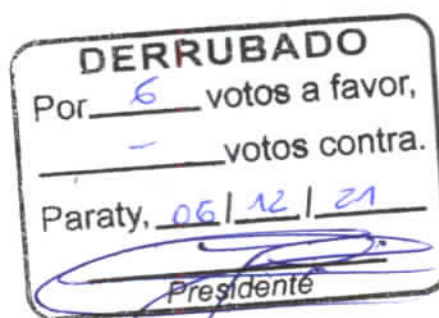 DERRUBADO
Por 6 votos a favor,
- votos contra.
Paraty, 06 / 12 / 21
Presidente